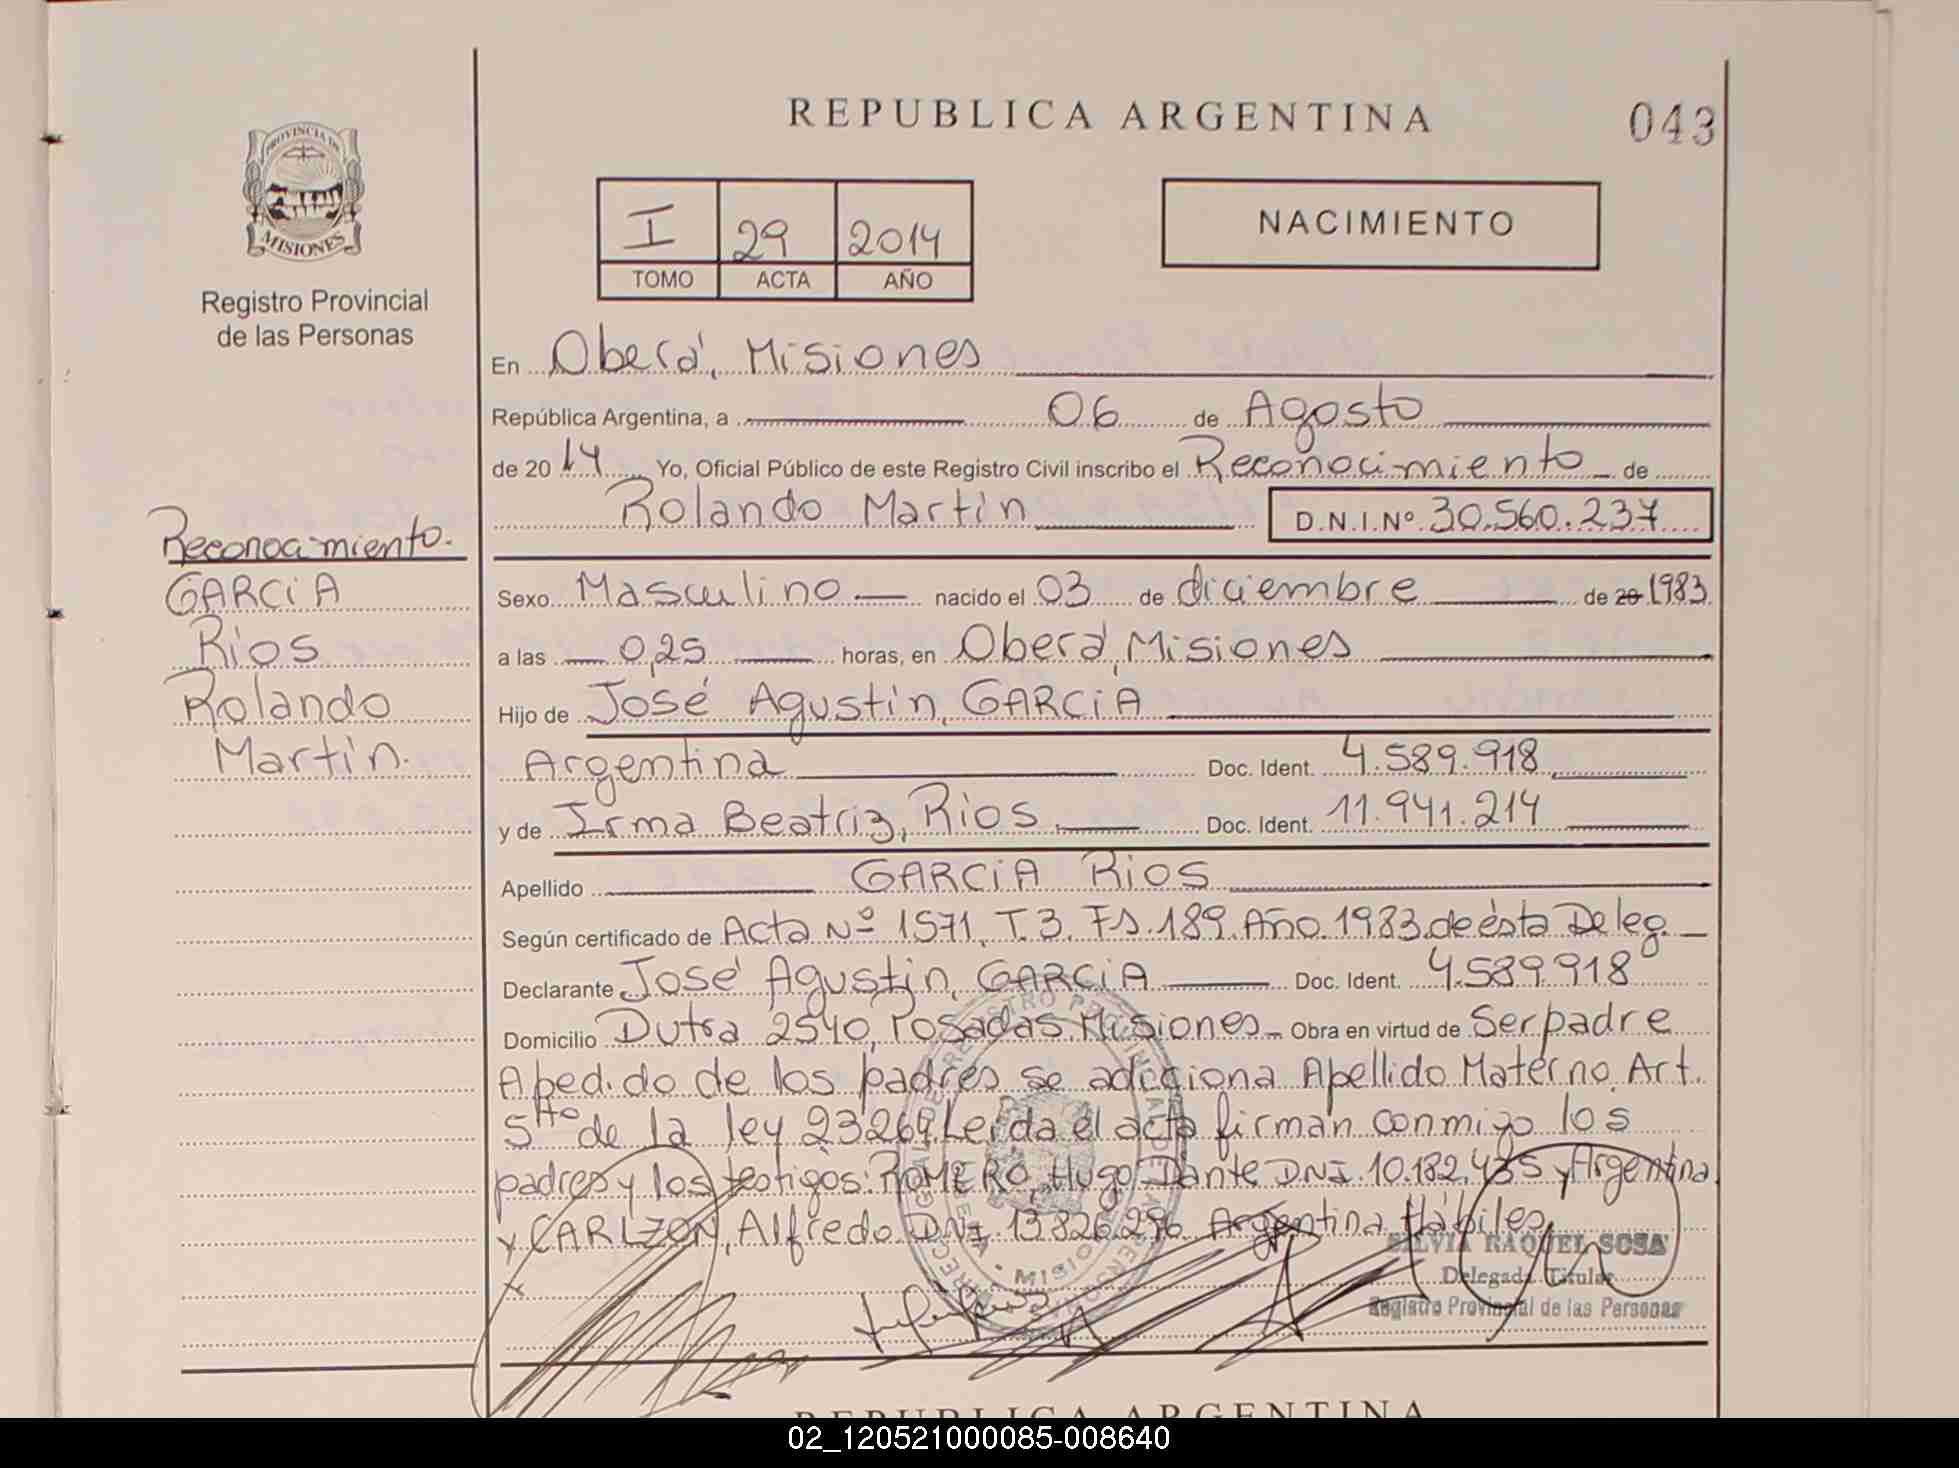 REPUBLICA ARGENTINA
043
PROVINCIA DE
MISIONES
Registro Provincial
de las Personas
I 29 2014
TOMO ACTA AÑO
NACIMIENTO
En Oberá, Misiones
República Argentina, a 06 de Agosto
de 2014 Yo, Oficial Público de este Registro Civil inscribo el Reconocimiento de
Rolando Martín D.N.I.Nº 30.560.237
Reconocimiento.
GARCiA
Rios
Rolando
Martín.
Sexo Masculino nacido el 03 de diciembre de 20 1983
a las 0,25 horas, en Oberá, Misiones
Hijo de José Agustín, GARCiA
Argentina Doc. Ident. 4.589.918
y de Irma Beatriz, Rios Doc. Ident. 11.941.214
Apellido GARCiA Rios
Según certificado de Acta Nº 1571. T.3. Fs.189.Año.1983.de ésta Deleg.
Declarante José Agustín, GARCiA Doc. Ident. 4.589.918
Domicilio Dutra 2540, Posadas, Misiones Obra en virtud de Ser padre
A pedido de los padres se adiciona Apellido Materno. Art.
5to de la ley 23264. Leida el acta firman conmigo los
padres y los testigos: ROMERO, Hugo Dante DNI. 10.182.435 y Argentina,
y CARLZON, Alfredo DNI 13826.296 Argentina Hábiles.
SILVIA RAQUEL SOSA
Delegada Titular
Registro Provincial de las Personas
REPUBLICA ARGENTINA
02_120521000085-008640